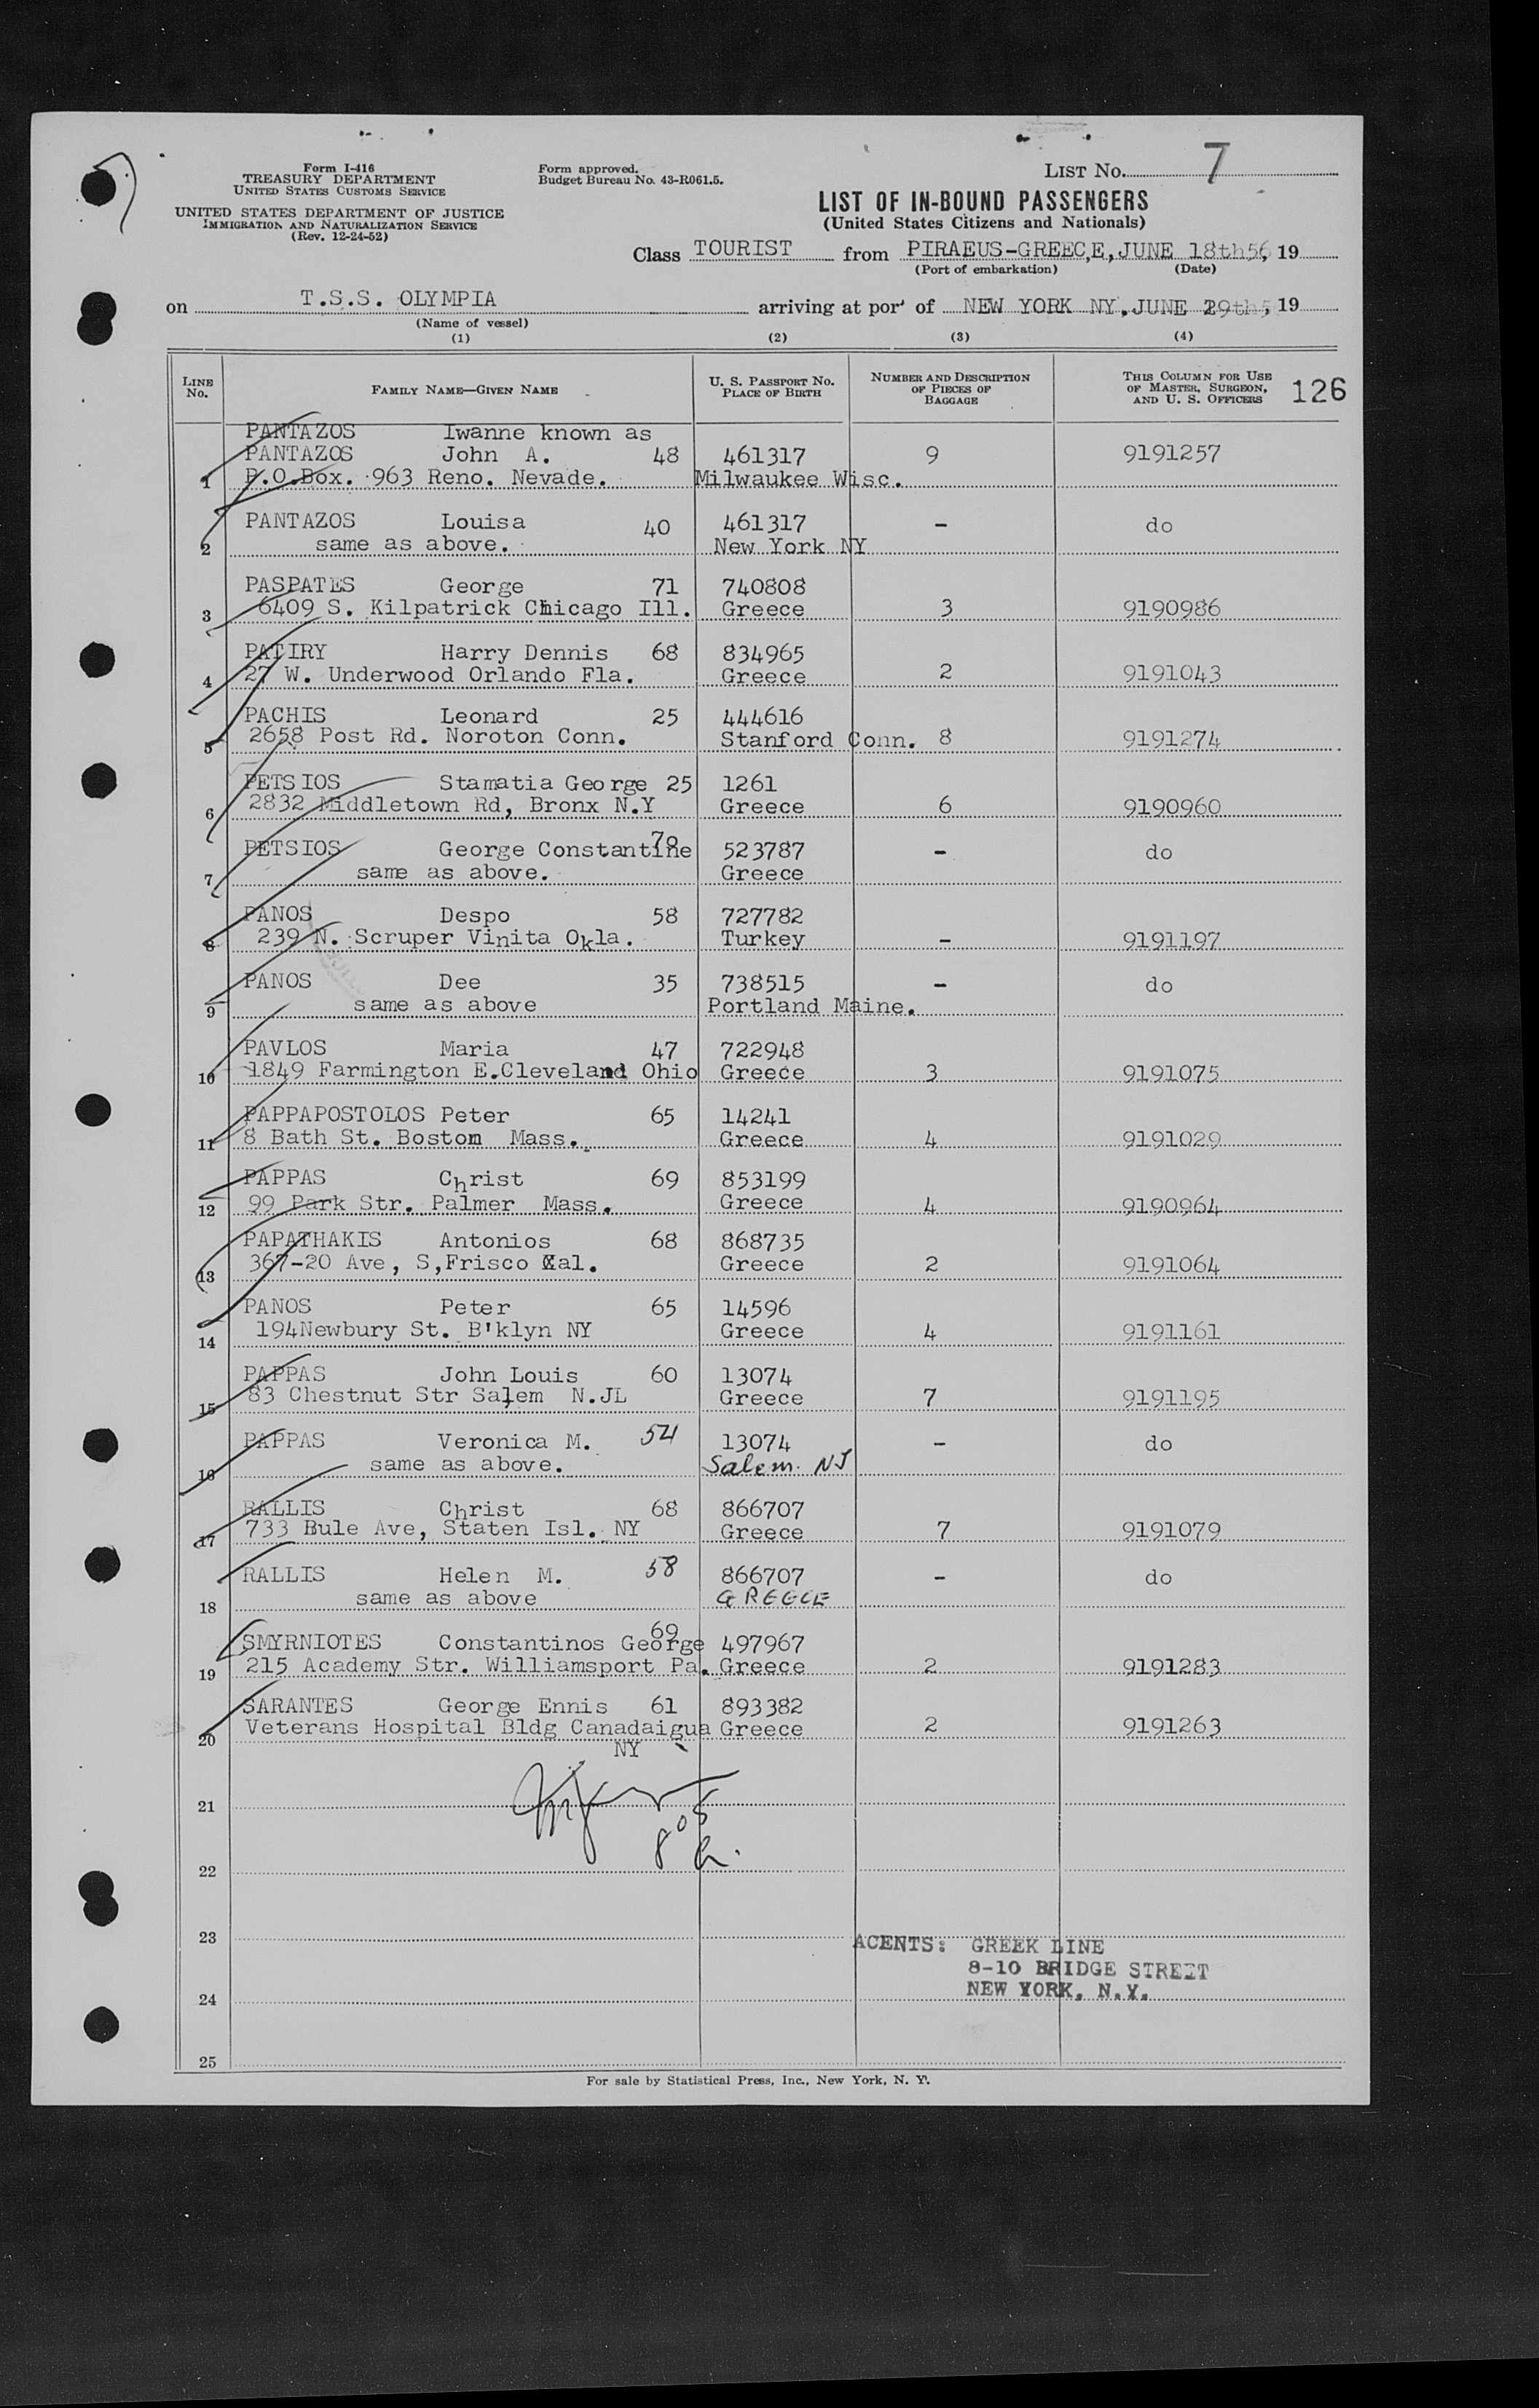 Form I-416
TREASURY DEPARTMENT
UNITED STATES CUSTOMS SERVICE
UNITED STATES DEPARTMENT OF JUSTICE
IMMIGRATION AND NATURALIZATION SERVICE
(Rev. 12-24-52)
Form approved.
Budget Bureau No. 43-R061.5.
LIST No. 7
LIST OF IN-BOUND PASSENGERS
(United States Citizens and Nationals)
Class TOURIST from PIRAEUS-GREECE, JUNE 18th56, 19
(Port of embarkation) (Date)
on T.S.S. OLYMPIA arriving at port of NEW YORK NY, JUNE 29th5, 19
(Name of vessel)
(1) (2) (3) (4)
LINE No. FAMILY NAME—GIVEN NAME U. S. PASSPORT No. PLACE OF BIRTH NUMBER AND DESCRIPTION OF PIECES OF BAGGAGE THIS COLUMN FOR USE OF MASTER, SURGEON, AND U. S. OFFICERS 126
PANTAZOS Iwanne known as
PANTAZOS John A. 48 461317 9 9191257
1 P.O.Box. 963 Reno. Nevade. Milwaukee Wisc.
PANTAZOS Louisa 40 461317 - do
2 same as above. New York NY
PASPATES George 71 740808
3 6409 S. Kilpatrick Chicago Ill. Greece 3 9190986
PATIRY Harry Dennis 68 834965
4 27 W. Underwood Orlando Fla. Greece 2 9191043
PACHIS Leonard 25 444616
5 2658 Post Rd. Noroton Conn. Stanford Conn. 8 9191274
PETSIOS Stamatia George 25 1261
6 2832 Middletown Rd, Bronx N.Y Greece 6 9190960
PETSIOS George Constantine 523787 - do
7 same as above. Greece
PANOS Despo 58 727782
8 239 N. Scruper Vinita Okla. Turkey - 9191197
PANOS Dee 35 738515 - do
9 same as above Portland Maine.
PAVLOS Maria 47 722948
10 1849 Farmington E.Cleveland Ohio Greece 3 9191075
PAPPAPOSTOLOS Peter 65 14241
11 8 Bath St. Boston Mass. Greece 4 9191029
PAPPAS Christ 69 853199
12 99 Park Str. Palmer Mass. Greece 4 9190964
PAPATHAKIS Antonios 68 868735
13 367-20 Ave, S,Frisco Cal. Greece 2 9191064
PANOS Peter 65 14596
14 194Newbury St. B'klyn NY Greece 4 9191161
PAPPAS John Louis 60 13074
15 83 Chestnut Str Salem N.JL Greece 7 9191195
PAPPAS Veronica M. 54 13074 - do
16 same as above. Salem. NJ
RALLIS Christ 68 866707
17 733 Bule Ave, Staten Isl. NY Greece 7 9191079
RALLIS Helen M. 58 866707 - do
18 same as above GREECE
69
SMYRNIOTES Constantinos George 497967
19 215 Academy Str. Williamsport Pa. Greece 2 9191283
SARANTES George Ennis 61 893382
20 Veterans Hospital Bldg Canadaigua Greece 2 9191263
NY
21
22
23 ACENTS: GREEK LINE
8-10 BRIDGE STREET
24 NEW YORK, N.Y.
25
For sale by Statistical Press, Inc., New York, N. Y.